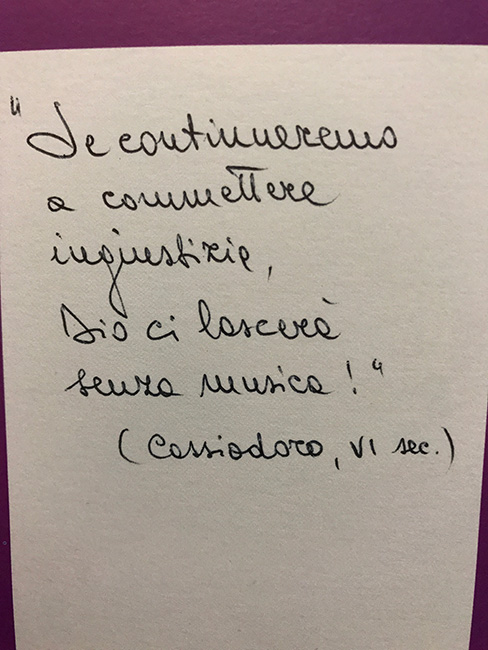 "Se continueremo
a commettere
ingiustizie,
Dio ci lascerà
senza musica!"
(Cassiodoro, VI sec.)